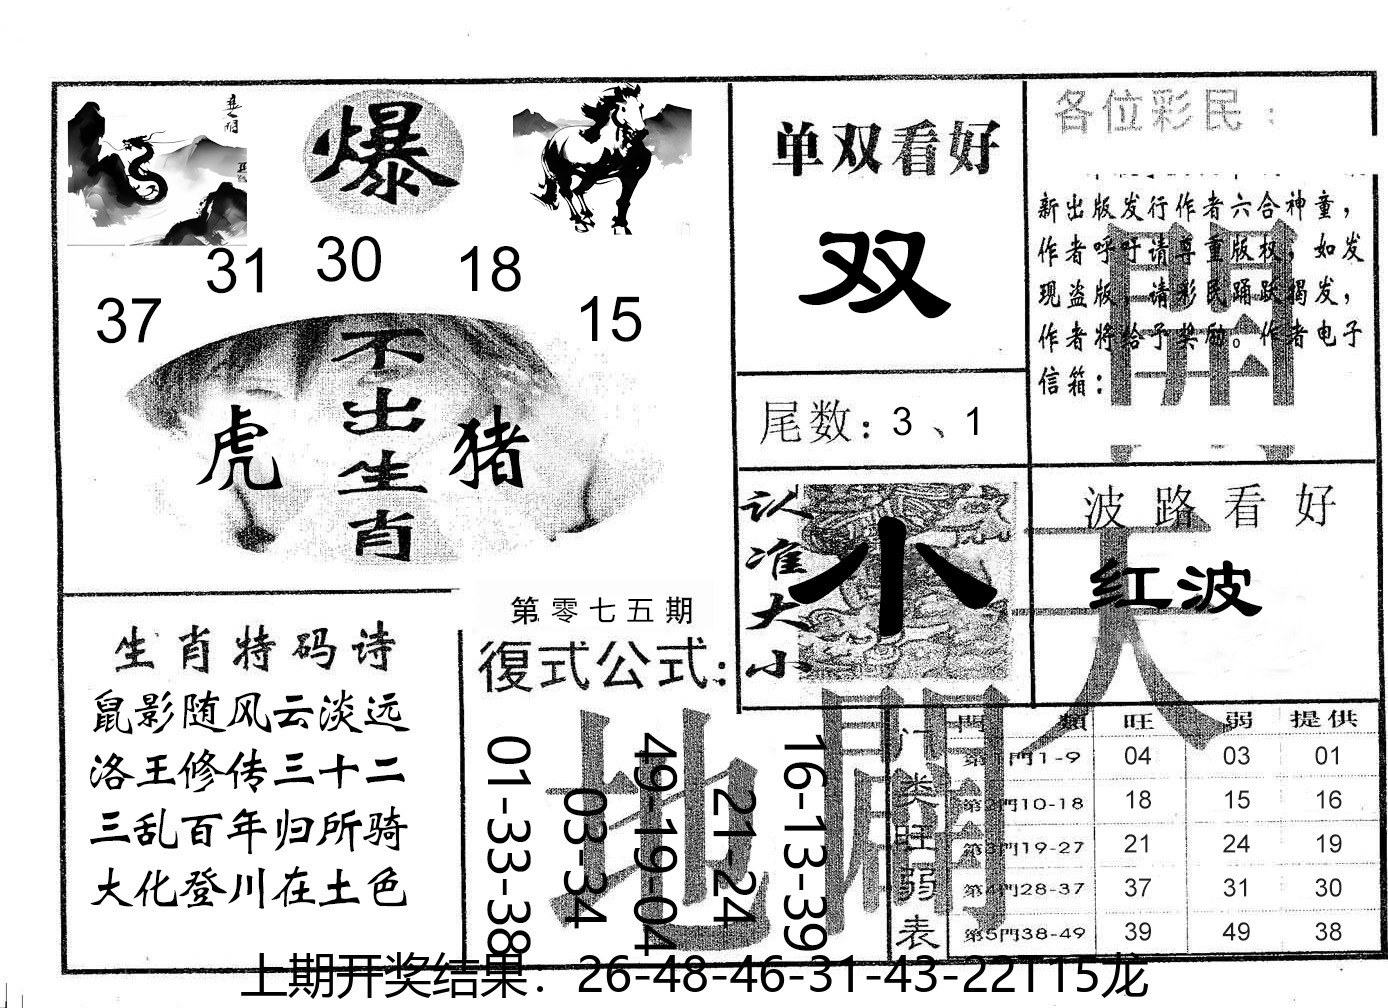 爆
31 30 18
37 15
不出生肖
虎 猪
单双看好
双
尾数：3、1
各位彩民：
新出版发行作者六合神童，
作者呼吁请尊重版权，如发
现盗版，请彩民踊跃揭发，
作者将给予奖励。作者电子
信箱：
開
认准大小
小
波路看好
红波
天
生肖特码诗
鼠影随风云淡远
洛王修传三十二
三乱百年归所骑
大化登川在土色
第零七五期
復式公式：
01-33-38
03-34
49-19-04
21-24
16-13-39
地
闢
门类旺弱表
門類 旺 弱 提供
第1門1-9 04 03 01
第2門10-18 18 15 16
第3門19-27 21 24 19
第4門28-37 37 31 30
第5門38-49 39 49 38
上期开奖结果：26-48-46-31-43-22T15龙